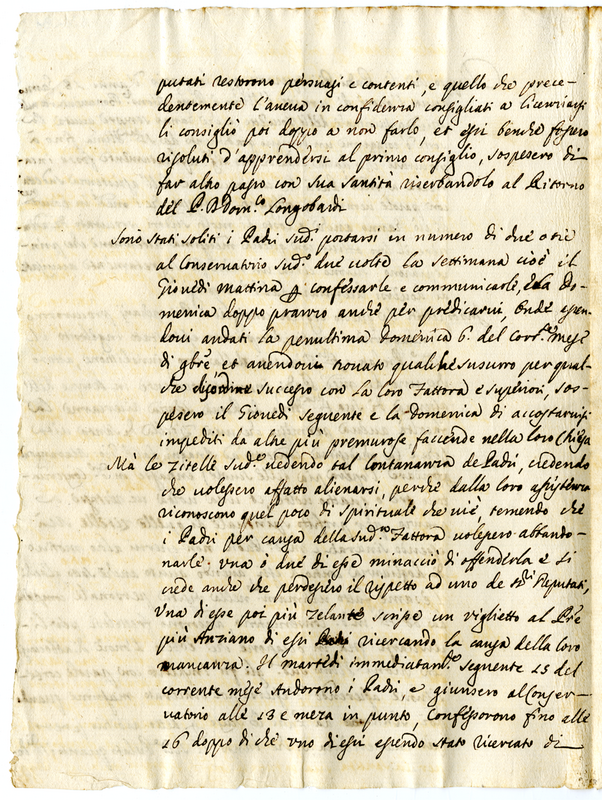 putati restorono persuasi e contenti, e quello che prece-
dentemente l'aueua in confidenza consigliati a licenziarsi
li consigliò poi doppo a non farlo, et essi benche fossero
risoluti d'apprendersi al primo consiglio, sospesero di
far altro passo con sua Santità riserbandolo al Ritorno
del P. B Dom.co Longobardi
Sono stati soliti i Padri sud.i portarsi in numero di due o trè
al Conseruatorio sud.o due uolte la settimana cioè il
Giouedi mattina p confessarle e communicarle, e la Do-
menica doppo pranzo anche per predicarui, Onde essen-
doui andati la penultima domenica 6. del corr.te mese
di gbre et auendoui trouato qualche susurro per qual-
che disordine successo con la loro Fattora e superiori, sos-
pesero il Giouedi seguente e la domenica di accostaruisi
impediti da altre più premurose faccende nella loro Chiesa
Mà le Zitelle sud.e uedendo tal lontananza de Padri, credendo
che uolessero affatto alienarsi, perche dalla loro assistenza
riconoscono quel poco di spirituale che ui è, temendo che
i Padri per causa della sud.a Fattora uolessero abbando-
narle: una ò due di esse minacciò di offenderla e si
crede anche che perdessero il rispetto ad uno de SS.ri Deputati,
Vna di esse poi più zelante scrisse un viglietto al Pre
più Anziano di essi ricercando la causa della loro
mancanza. Il martedi immediatam.te seguente 15 del
corrente mese Andorono i Padri, e giunsero al Conser-
uatorio alle 13 e meza in punto, Confessorono fino alle
16 doppo di che uno di essi essendo stato ricercato di